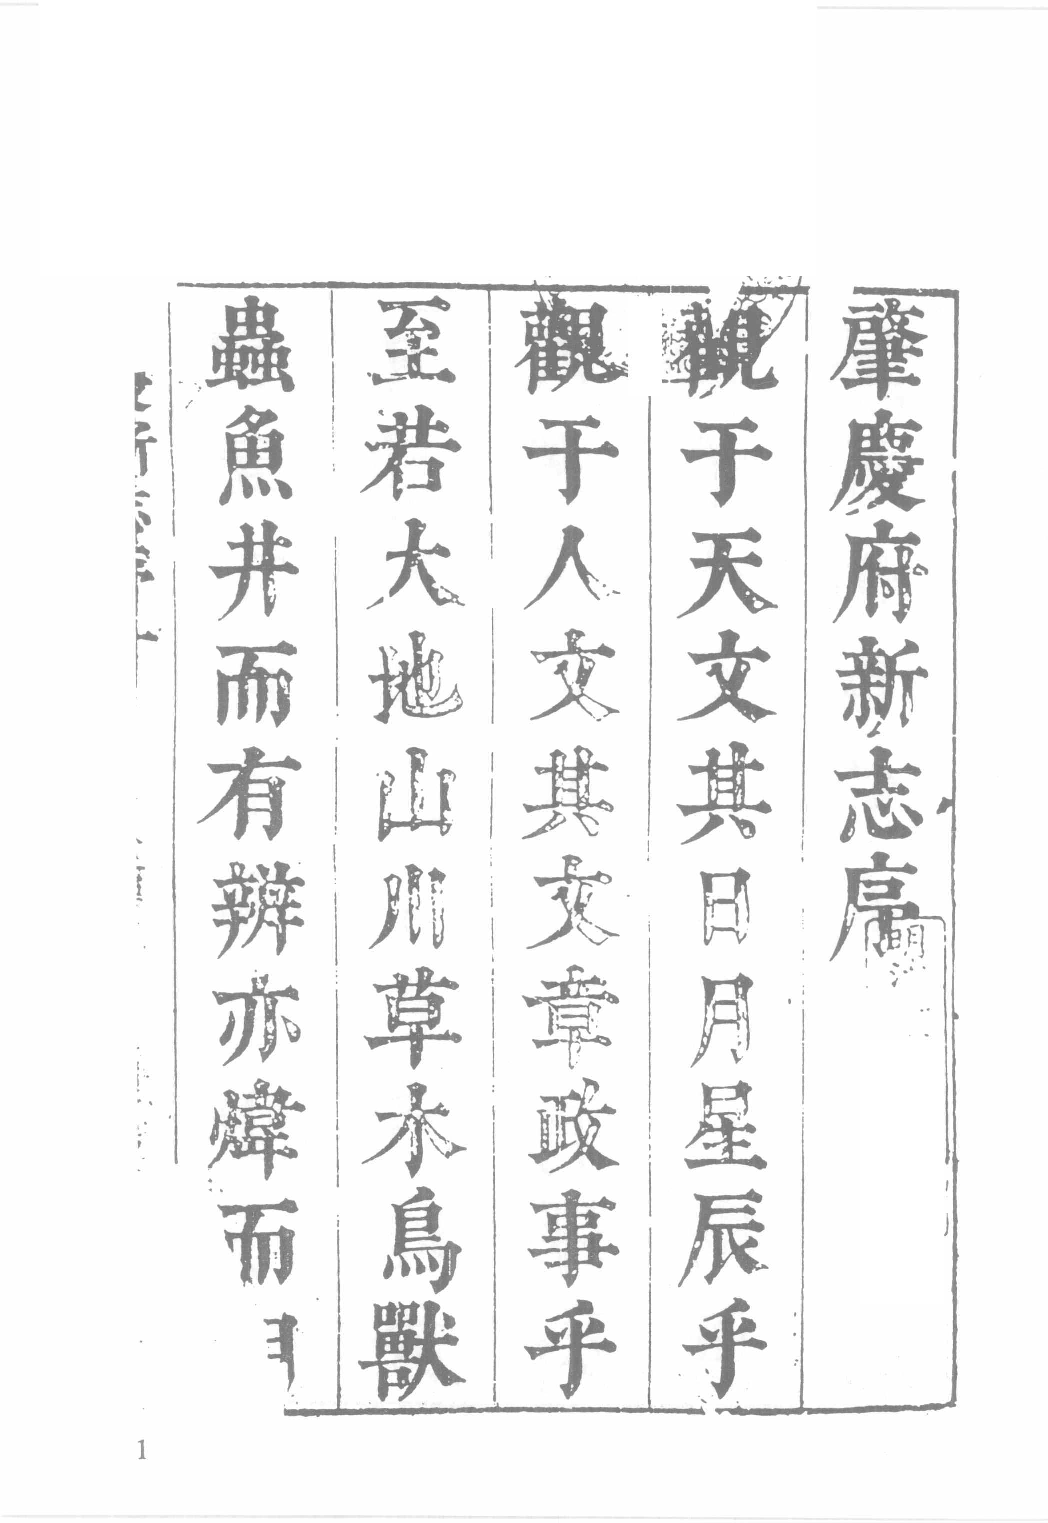 肇慶府新志序
觀于天文其日月星辰乎
觀于人文其文章政事乎
至若大地山川草木鳥獸
蟲魚井而有辨亦煒而
1